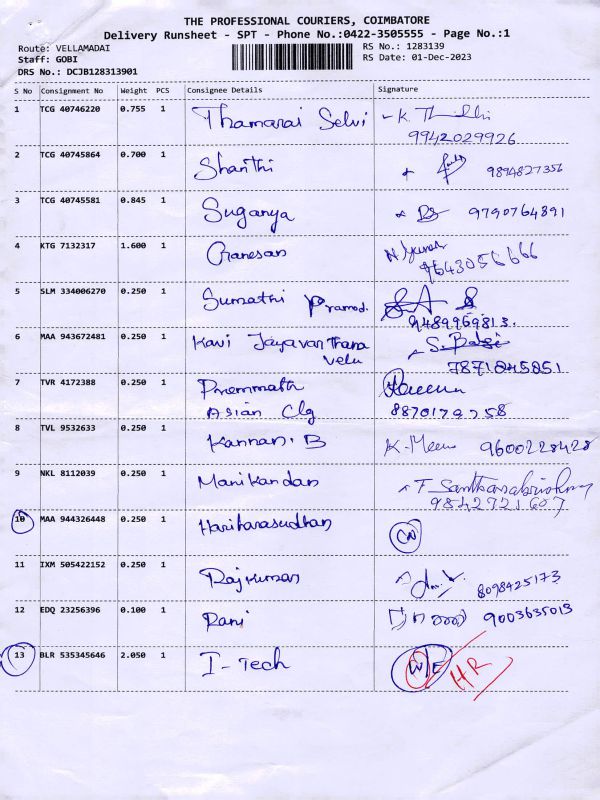 THE PROFESSIONAL COURIERS, COIMBATORE
Delivery Runsheet - SPT - Phone No.:0422-3505555 - Page No.:1
Route: VELLAMADAI RS No.: 1283139
Staff: GOBI RS Date: 01-Dec-2023
DRS No.: DCJB128313901
S No Consignment No Weight PCS Consignee Details Signature
1 TCG 40746220 0.755 1 Thamarai Selvi K.
9942029926
2 TCG 40745864 0.700 1 Shanthi 9894827356
3 TCG 40745581 0.845 1 Suganya 9790764891
4 KTG 7132317 1.600 1 Ganesan
9643056666
5 SLM 334006270 0.250 1 Sumathi Pramod.
9489969813.
6 MAA 943672481 0.250 1 Kavi Jayavarthana S.
Velu 7871045851
7 TVR 4172388 0.250 1 Premnath
Asian Clg 8870179758
8 TVL 9532633 0.250 1 Kannan. B K. Meena 9600228428
9 NKL 8112039 0.250 1 Manikandan
9842921607
10 MAA 944326448 0.250 1 Hariharasudhan CN
11 IXM 505422152 0.250 1 Rajkumar 8098425173
12 EDQ 23256396 0.100 1 Rani 9003635013
13 BLR 535345646 2.050 1 I-Tech HR